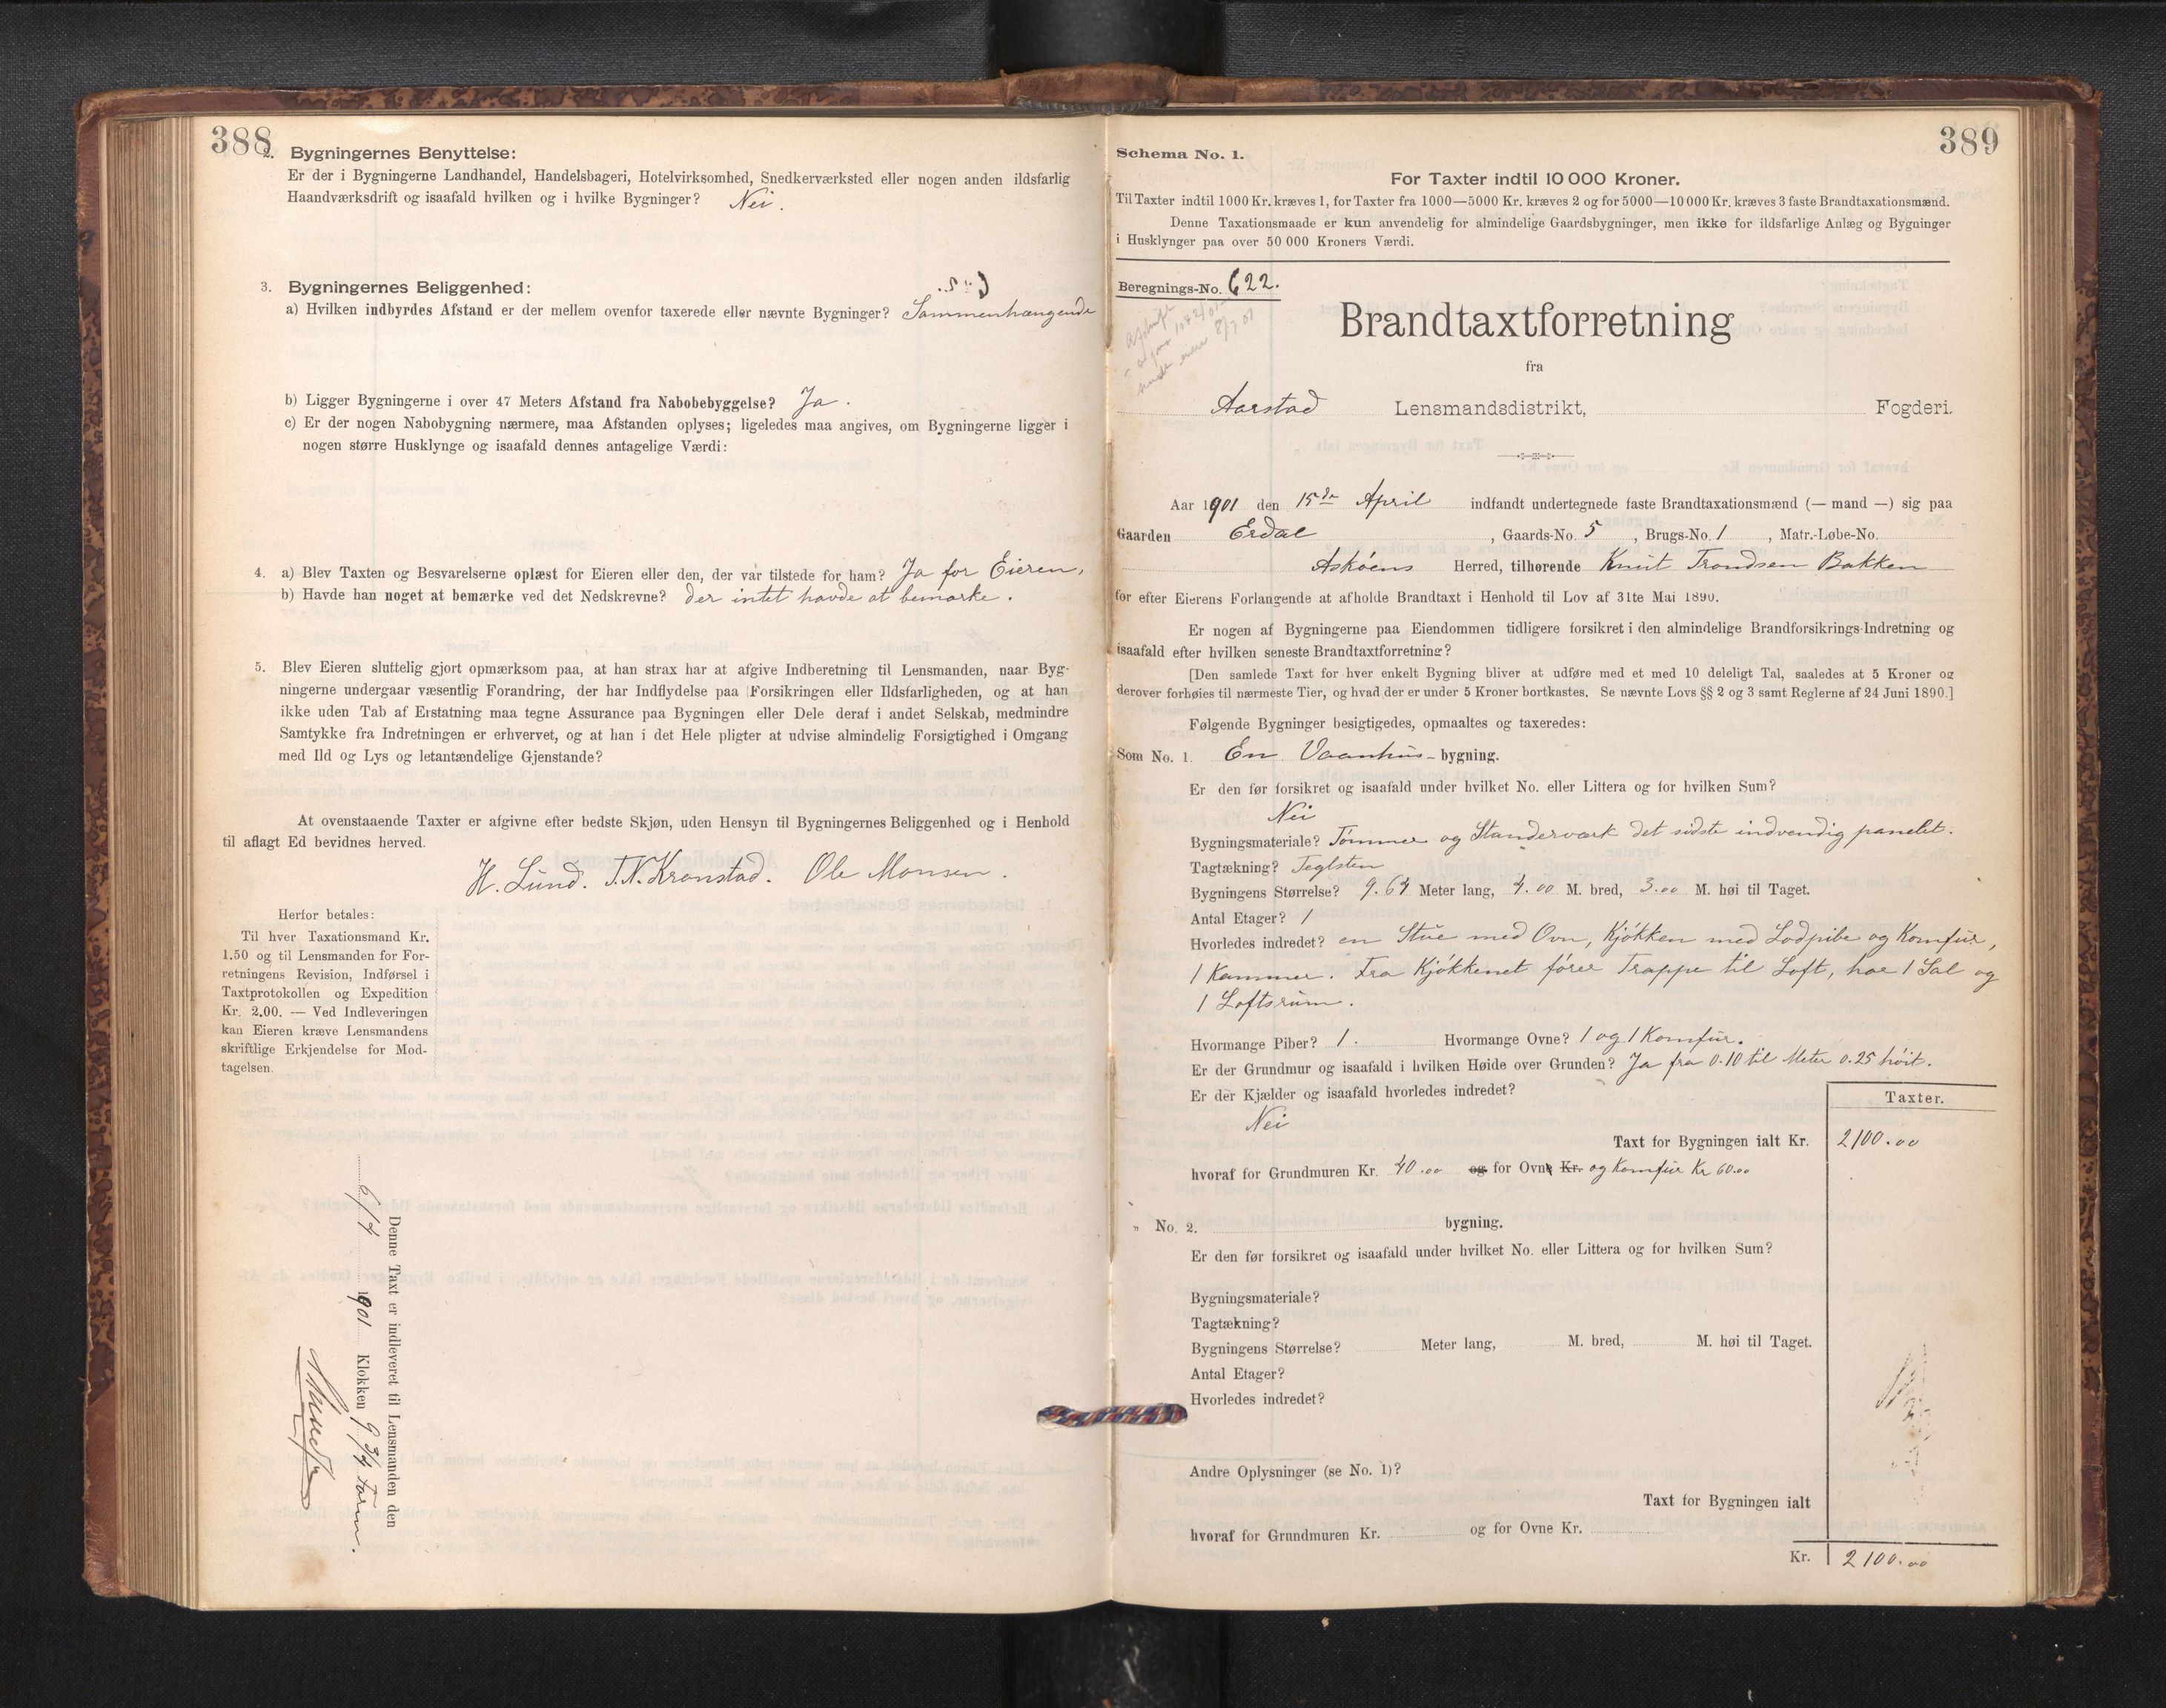 388
2. Bygningernes Benyttelse:
Er der i Bygningerne Landhandel, Handelsbageri, Hotelvirksomhed, Snedkerværksted eller nogen anden ildsfarlig
Haandværksdrift og isaafald hvilken og i hvilke Bygninger? Nei.
3. Bygningernes Beliggenhed:
a) Hvilken indbyrdes Afstand er der mellem ovenfor taxerede eller nævnte Bygninger? Sammenhængende
b) Ligger Bygningerne i over 47 Meters Afstand fra Nabobebyggelse? Ja.
c) Er der nogen Nabobygning nærmere, maa Afstanden oplyses; ligeledes maa angives, om Bygningerne ligger i
nogen større Husklynge og isaafald dennes antagelige Værdi:
4. a) Blev Taxten og Besvarelserne oplæst for Eieren eller den, der var tilstede for ham? Ja for Eieren,
b) Havde han noget at bemærke ved det Nedskrevne? der intet havde at bemærke.
5. Blev Eieren sluttelig gjort opmærksom paa, at han strax har at afgive Indberetning til Lensmanden, naar Byg-
ningerne undergaar væsentlig Forandring, der har Indflydelse paa Forsikringen eller Ildsfarligheden, og at han
ikke uden Tab af Erstatning maa tegne Assurance paa Bygningen eller Dele deraf i andet Selskab, medmindre
Samtykke fra Indretningen er erhvervet, og at han i det Hele pligter at udvise almindelig Forsigtighed i Omgang
med Ild og Lys og letantændelige Gjenstande?
At ovenstaaende Taxter er afgivne efter bedste Skjøn, uden Hensyn til Bygningernes Beliggenhed og i Henhold
til aflagt Ed bevidnes herved.
H. Lund. T. N. Kronstad. Ole Monsen.
Herfor betales:
Til hver Taxationsmand Kr.
1.50 og til Lensmanden for For-
retningens Revision, Indførsel i
Taxtprotokollen og Expedition
Kr. 2.00. — Ved Indleveringen
kan Eieren kræve Lensmandens
skriftlige Erkjendelse for Mod-
tagelsen.
Denne Taxt er indleveret til Lensmanden den
6/7 1901 Klokken 9 3/4 Form.
389
Schema No. 1.
For Taxter indtil 10 000 Kroner.
Til Taxter indtil 1000 Kr. kræves 1, for Taxter fra 1000—5000 Kr. kræves 2 og for 5000—10 000 Kr. kræves 3 faste Brandtaxationsmænd.
Denne Taxationsmaade er kun anvendelig for almindelige Gaardsbygninger, men ikke for ildsfarlige Anlæg og Bygninger
i Husklynger paa over 50 000 Kroners Værdi.
Beregnings-No. 622.
Brandtaxtforretning
fra
Aarstad Lensmandsdistrikt, Fogderi.
Aar 1901 den 15de April indfandt undertegnede faste Brandtaxationsmænd (— mand —) sig paa
Gaarden Erdal, Gaards-No. 5, Brugs-No. 1, Matr.-Løbe-No.
Askøens Herred, tilhørende Knut Trondsen Bakken
for efter Eierens Forlangende at afholde Brandtaxt i Henhold til Lov af 31te Mai 1890.
Er nogen af Bygningerne paa Eiendommen tidligere forsikret i den almindelige Brandforsikrings-Indretning og
isaafald efter hvilken seneste Brandtaxtforretning?
[Den samlede Taxt for hver enkelt Bygning bliver at udføre med et med 10 deleligt Tal, saaledes at 5 Kroner og
derover forhøies til nærmeste Tier, og hvad der er under 5 Kroner bortkastes. Se nævnte Lovs §§ 2 og 3 samt Reglerne af 24 Juni 1890.]
Følgende Bygninger besigtigedes, opmaaltes og taxeredes:
Som No. 1. En Vaanhus-bygning.
Er den før forsikret og isaafald under hvilket No. eller Littera og for hvilken Sum?
Nei
Bygningsmateriale? Tømmer og Standerværk det sidste indvendig panelet.
Tagtækning? Teglsten
Bygningens Størrelse? 9.64 Meter lang, 4.00 M. bred, 3.00 M. høi til Taget.
Antal Etager? 1
Hvorledes indredet? en Stue med Ovn, Kjøkken med Lodpibe og Komfur,
1 Kammer. Fra Kjøkkenet fører Trappe til Loft, har 1 Sal og
1 Loftsrum.
Hvormange Piber? 1. Hvormange Ovne? 1 og 1 Komfur.
Er der Grundmur og isaafald i hvilken Høide over Grunden? Ja fra 0.10 til Meter 0.25 høit.
Er der Kjælder og isaafald hvorledes indredet?
Nei
Taxter.
Taxt for Bygningen ialt Kr. 2100.00
hvoraf for Grundmuren Kr. 40.00 og for Ovn Kr. og Komfur Kr 60.00
" No. 2. bygning.
Er den før forsikret og isaafald under hvilket No. eller Littera og for hvilken Sum?
Bygningsmateriale?
Tagtækning?
Bygningens Størrelse? Meter lang, M. bred, M. høi til Taget.
Antal Etager?
Hvorledes indredet?
Andre Oplysninger (se No. 1)?
Taxt for Bygningen ialt
hvoraf for Grundmuren Kr. og for Ovne Kr.
Kr. 2100.00